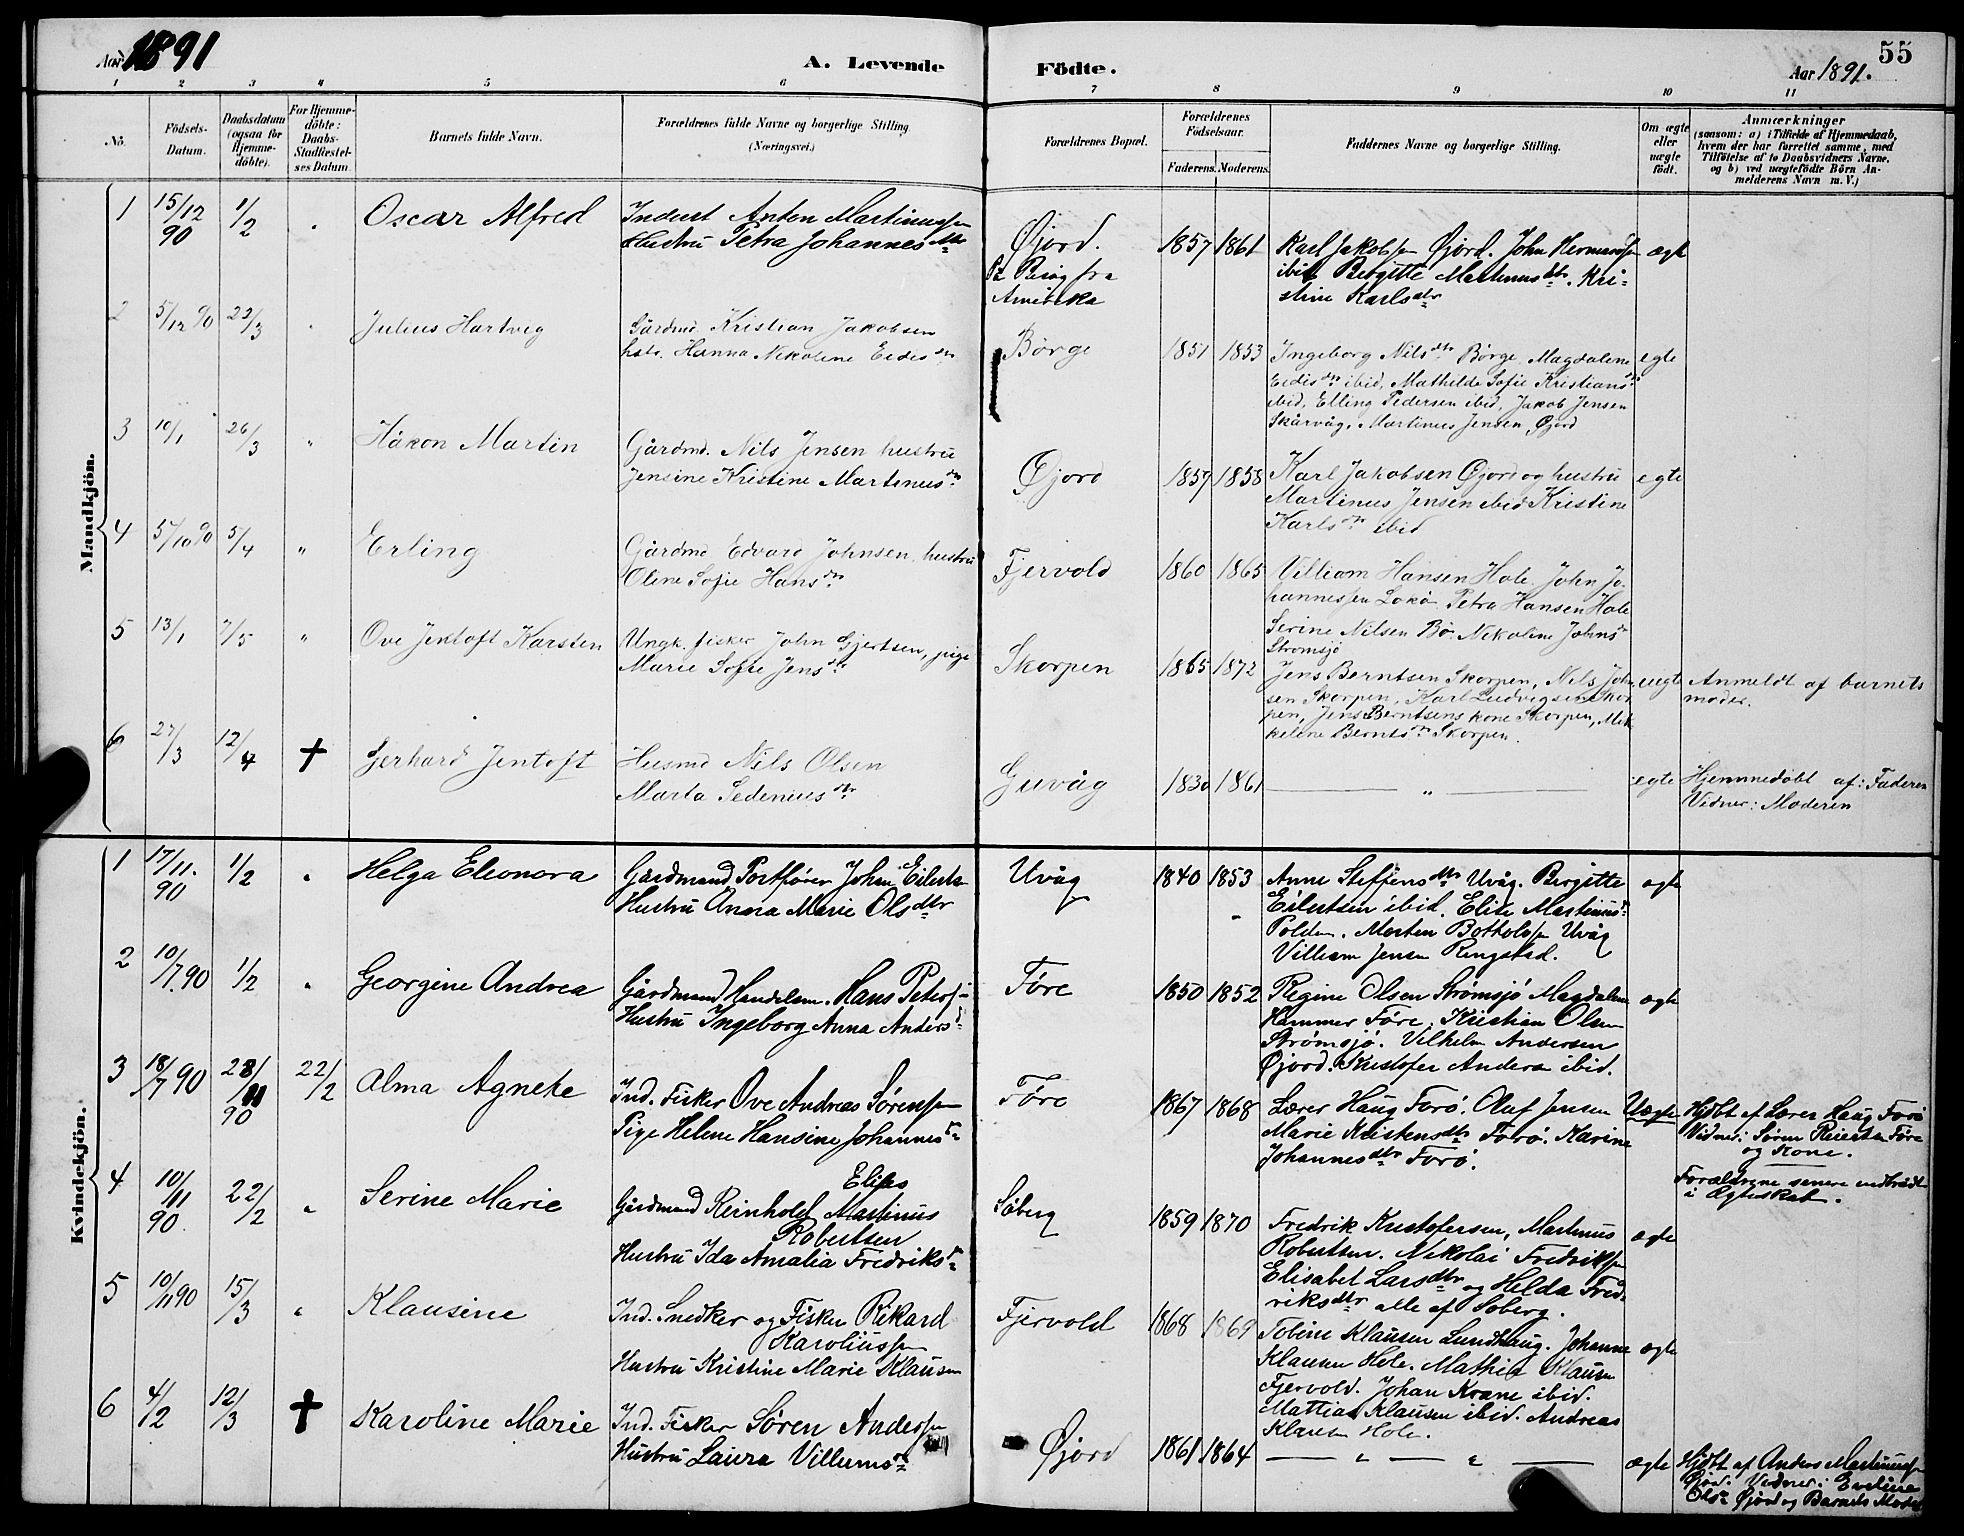 Aar 1891
A. Levende Födte.
Aar 1891.
55
1 2 3 4 5 6 7 8 9 10 11
No.
Födsels-Datum.
Daabsdatum (ogsaa for Hjemme-döbte).
For Hjemme-döbte: Daabs-Stadfæstel-ses Datum
Barnets fulde Navn.
Forældrenes fulde Navne og borgerlige Stilling (Næringsvei.)
Forældrenes Bopæl.
Forældrenes Födselsaar.
Faderens. Moderens.
Faddernes Navne og borgerlige Stilling.
Om ægte eller uægte födt.
Anmærkninger
(saasom: a) i Tilfælde af Hjemmedaab, hvem der har forrettet samme, med Tilföielse af to Daabsvidners Navne, og b) ved uægtefödte Börn An-melderens Navn m. V.)
Mandkjön.
1 15/12 90 1/2 " Oscar Alfred
Inderst Anton Martinussen
Hustru Petra Johannesdtr
Øjord.
På Besøg fra
Amerika
1857 1861
Karl Jakobsen Øjord. John Hermansen
ibid Birgitte Martinusdtr. Kri-
stine Karlsdtr
ægte
2 5/12 90 22/3 " Julius Hartvig
Gårdmd. Kristian Jakobsen
hstr. Hanna Nikoline Eedisdtr
Börge
1851 1853
Ingeborg Nilsdtr Börge, Magdalene
Eedisdtr ibid, Mathilde Sofie Kristiansdtr
ibid, Elling Pedersen ibid, Jakob Jensen
Skårvåg, Martinus Jensen Øjord
egte
3 10/1 26/3 " Håkon Martin
Gårdmd. Nils Jensen hustru
Jensine Kristine Martinusdtr
Øjord
1857 1858
Karl Jakobsen Øjord og hustru
Martinus Jensen ibid Kristine
Karlsdtr ibid
egte
4 5/10 90 5/4 " Erling
Gårdmd Edvard Johnsen, hustru
Oline Sofie Hansdtr
Fjervold
1860 1865
Villiam Hansen Hole. John Jo-
hannessen Lokö Petra Hansen Hole
Serine Nilsen Bö. Nikoline Johnsdtr
Strömsjö
5 13/1 7/5 " Ove Jentoft Karsten
Ungk. fisker John Gjertsen, pige
Marie Sofie Jensdtr
Skorpen
1865 1872
Jens Berntsen Skorpen, Nils John-
sen Skorpen, Karl Ludvigsen Skor-
pen, Jens Berntsens kone Skorpen, Mik-
keline Berntsdtr Skorpen.
uegte
Anmeldt af barnets
moder.
6 27/3 12/4 † Gerhard Jentoft
Husmd Nils Olsen
Marta Sedeniusdtr
Guvåg
1830 1861
"
egte
Hjemmedöbt af: Faderen
Vidner: Moderen
Kvindekjön.
1 17/11. 90 1/2 " Helga Eleonora
Gårdmand Postfører John Eilertsen
Hustru Anna Marie Olsdtr
Uvåg
1840 1853
Anne Steffensdtr Uvåg. Birgitte
Eilertsen ibid. Elise Martinusdtr
Polden. Morten Bottolfsen Uvåg
Villiam Jensen Ringstad.
ægte
2 10/7. 90 1/2 " Georgine Andrea
Gårdmand Handelsm. Hans Petersen
Hustru Ingeborg Anna Andersdtr
Føre
1850 1852
Regine Olsen Strømsjö Magdalene
Hammer Føre. Kristian Olsen
Strømsjö. Vilhelm Andersen
Øjord. Kristofer Anders ibid.
ægte
3 18/7 90 28/11 90 22/2 Alma Agnete
Ind. Fisker Ove Andreas Sørensen
Pige Helene Hansine Johannesdtr
Føre
1867 1868
Lærer Haug Forö. Oluf Jensen
Marie Kristensdtr Forö. Karine
Johannesdtr Forö.
Uægte
Hjdbt af Lærer Haug Forö
Vidner: Søren Reierts Føre
og Kone.
Forældrene senere indtrådt
i Ægteskab.
4 10/11 90. 22/2 " Serine Marie
Elias
Gårdmand Reinholdt Martinus
Robertsen
Hustru Ida Amalia Fredriksdtr
Söberg
1859 1870
Fredrik Kristofersen, Martinus
Robertsen. Nikolai Fredriksen
Elisabet Larsdtr og Helda Fred-
riksdtr alle af Soberg.
ægte
5 10/11 90 15/3 " Klausine
Ind. Snedker og Fisker Rikard
Karoliussen
Hustru Kristine Marie Klausen
Fjervold
1868 1869
Tobine Klausen Lundhaug. Johanne
Klausen Hole. Mathea Klausen
Fjervold. Johan Krane ibid.
Mattias Klausen ibid. Andreas
Klausen Hole.
ægte
6 4/2 12/3 † Karoline Marie
Ind. Fisker Søren Andersen
Hustru Laura Villumsdtr
Øjord
1861 1864
" "
ægte
Hjdbt af Anders Martinussen
Øjord. Vidner: Eveline
Olsdtr Øjord og Barnets Moder